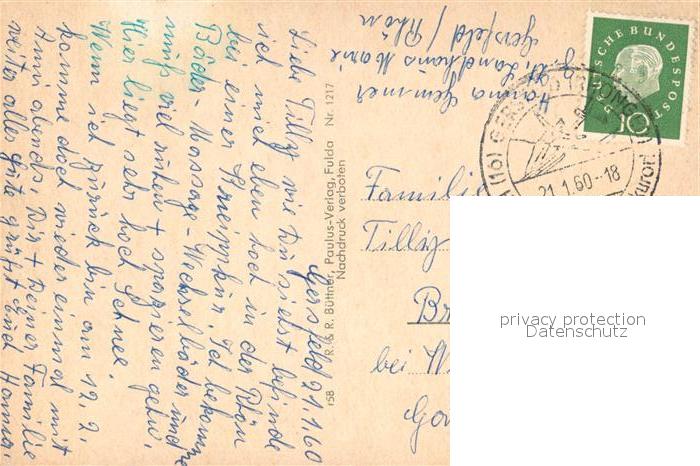 Gersfeld 21.1.60
Liebe Tilly wie Du siehst befinde
ich mich eben hoch in der Rhön
bei einer Kneippkur. Ich bekomme
Bäder - Massage - Wechselbäder und
muß viel ruhen + spazieren gehn.
Hier liegt sehr hoch Schnee.
Wenn ich zurück bin am 12.2.
komme doch wieder einmal mit
Anni abends. Dir + Deiner Familie
weiter alles Gute grüßt Euch Hanna.
158 R. & R. Büttner, Paulus-Verlag, Fulda Nr. 1217
Nachdruck verboten
Hanna
Landhaus Marie
Gersfeld / Rhön
DEUTSCHE BUNDESPOST
10
(16)
21.1.60.-18
Familie
Tilly
Br
bei W
privacy protection
Datenschutz